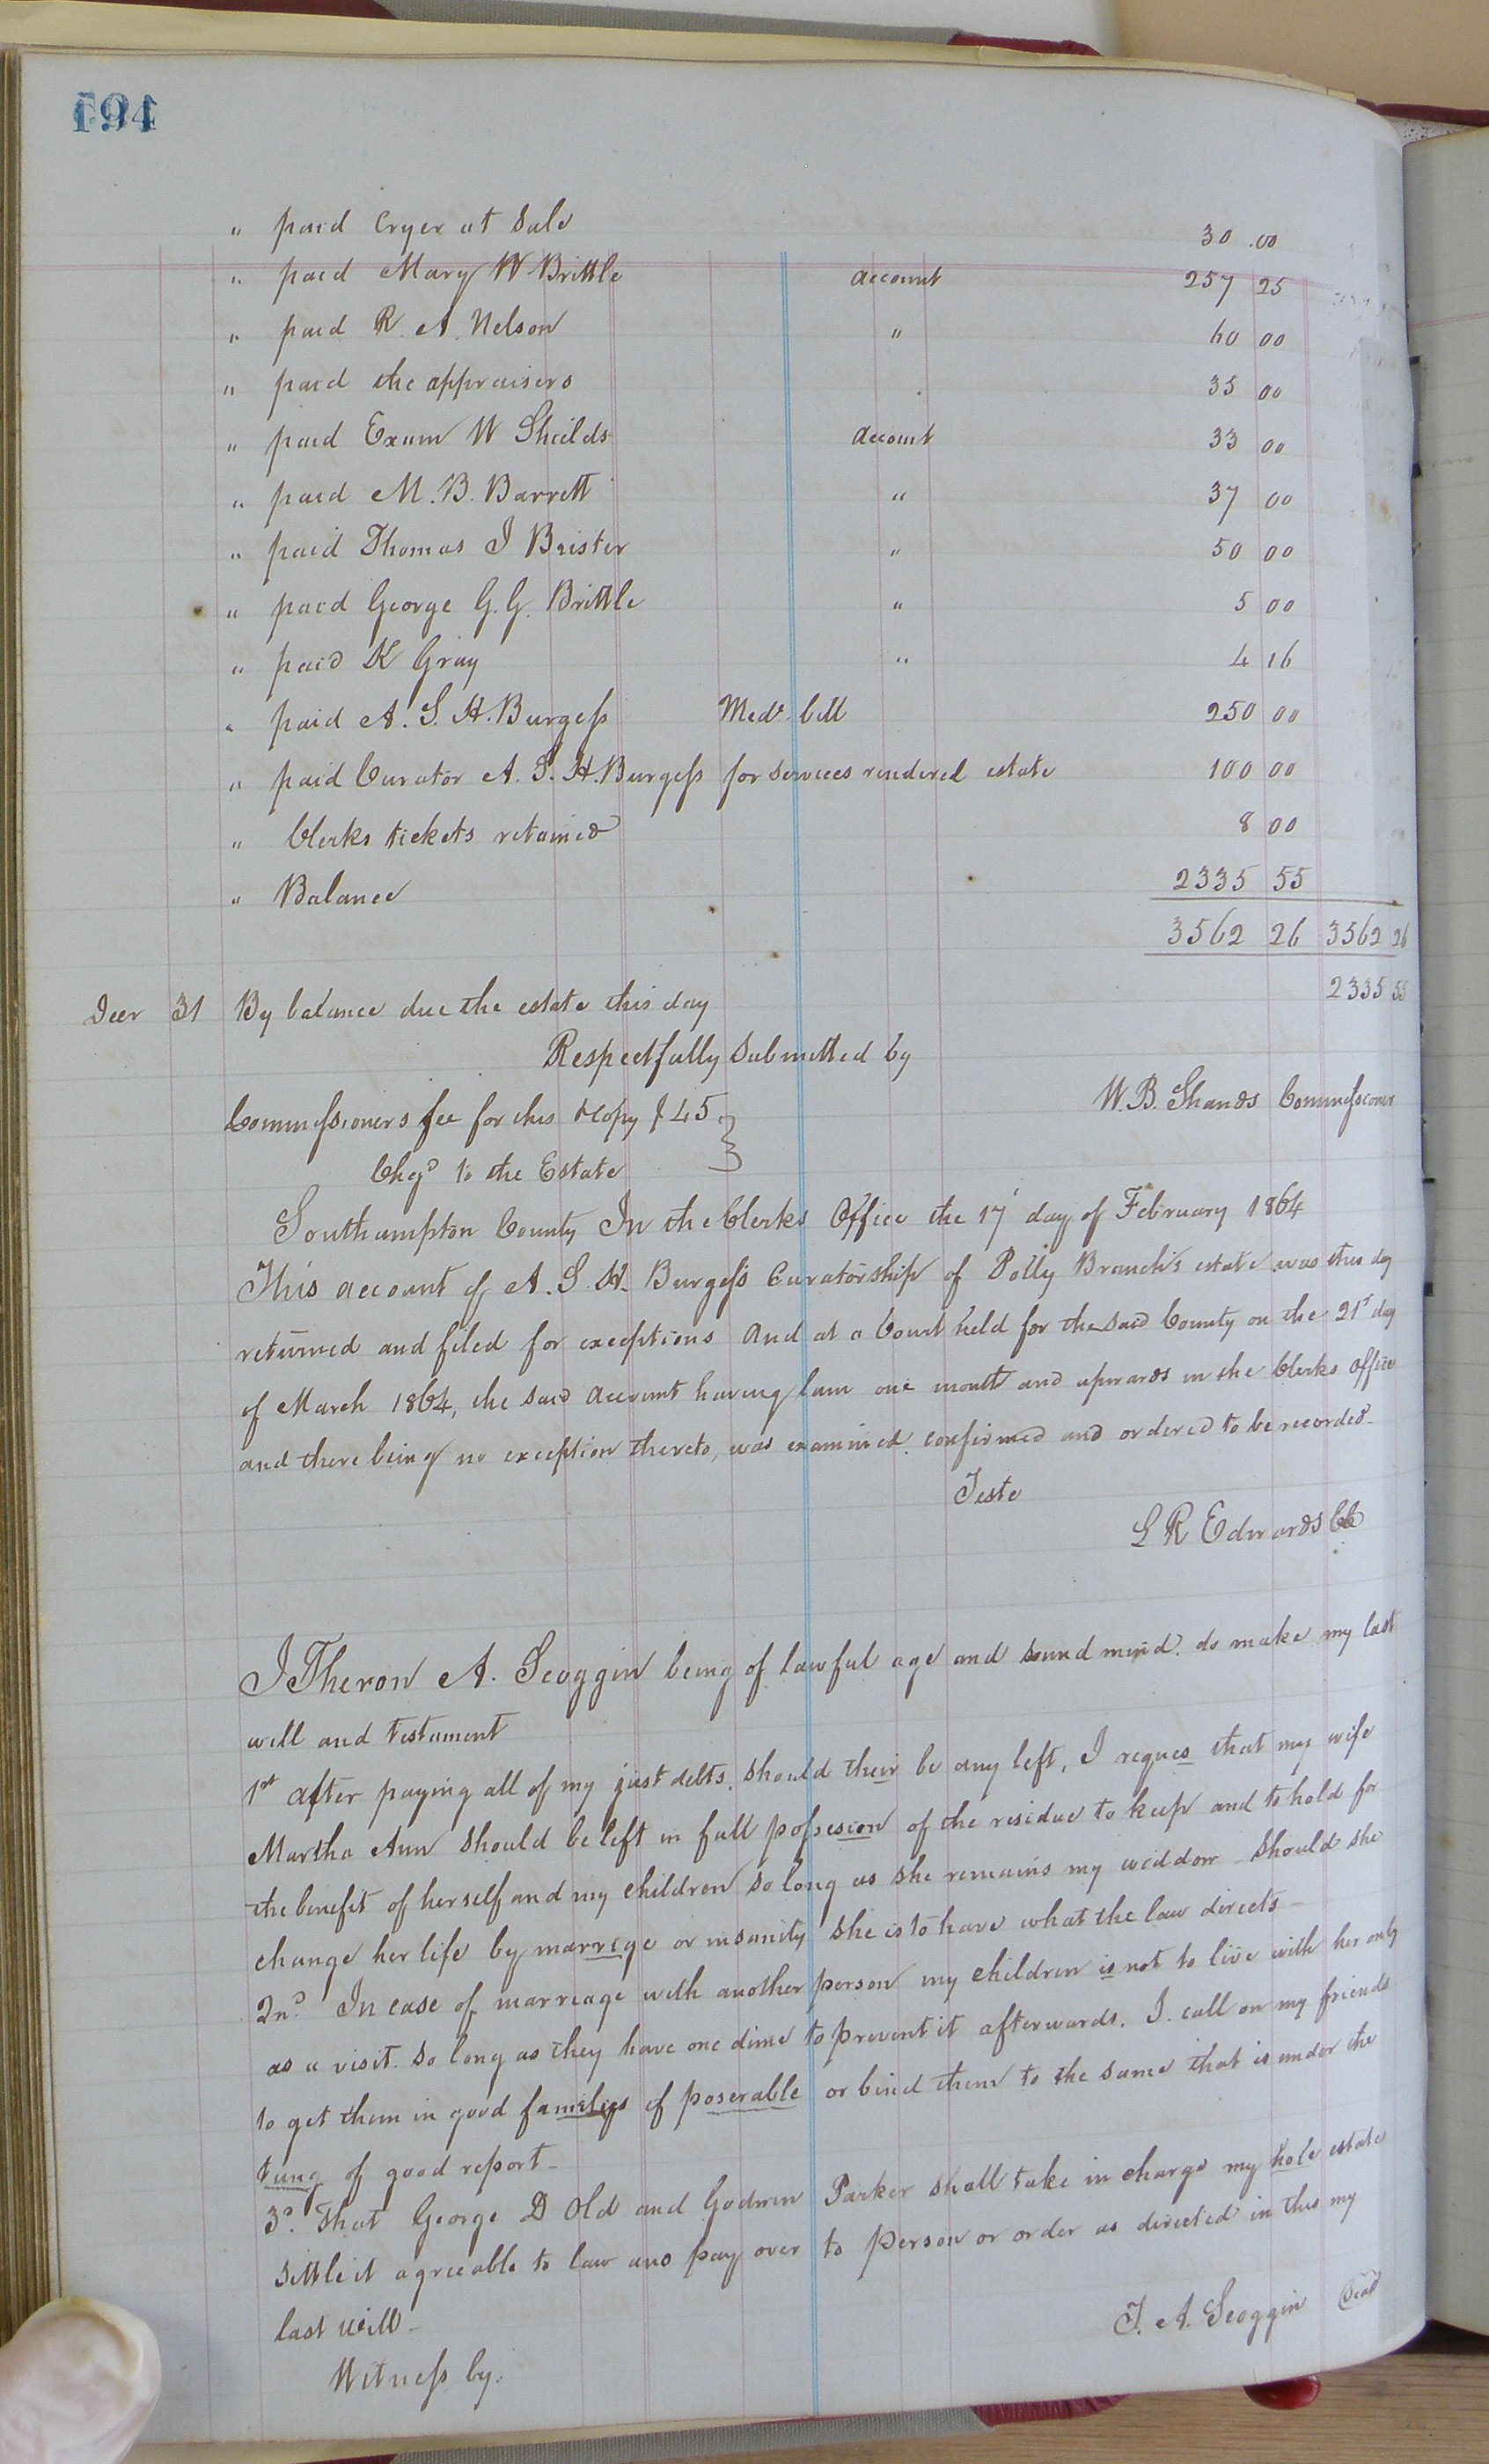 194
" paid Cryer at Sale 30.00
" paid Mary W Brittle account 257 25
" paid R. A. Nelson " 60 00
" paid the appraisers 35 00
" paid Exum W Shields account 33 00
" paid M. B. Barrett " 37 00
" paid Thomas J Brister " 50 00
" paid George G. G. Brittle " 5 00
" paid K Gray " 4 16
" paid A. S. H. Burgess Medl. bill 250 00
" paid Curator A. S. H. Burgess for services rendered estate 100 00
" Clerks tickets retained 8 00
" Balance 2335 55
3562 26 3562 26
Decr 31 By balance due the estate this day 2335 55
Respectfully Submitted by
W. B. Shands Commissioner
Commissioners fee for this & Copy $45
Chgd to the Estate
Southampton County In the Clerks Office the 17 day of February 1864
This account of A. S. H. Burgess Curatorship of Polly Branch's estate was this day
returned and filed for exceptions And at a Court held for the said County on the 21st day
of March 1864, the said Account having lain one month and upwards in the Clerks Office
and there being no exception thereto, was examined, confirmed and ordered to be recorded.
Teste
L R Edwards CC
I Theron A. Scoggin being of lawful age and sound mind, do make my last
will and testament
1st After paying all of my just debts, should their be any left, I reques that my wife
Martha Ann should be left in full possescion of the residue to keep and to hold for
the benefit of herself and my children so long as she remains my widdow should she
change her life by marrige or insanity she is to have what the law directs -
2nd. In case of marriage with another person my children is not to live with her only
as a visit. so long as they have one dime to prevent it afterwards. I call on my friends
to get them in good familigs if poserable or bind them to the same that is under the
tung of good report -
3d. That George D Old and Godwin Parker shall take in charge my hole estate
settle it agreeable to law and pay over to person or order as directed in this my
last will -
T. A. Scoggin Seal
Witness by.